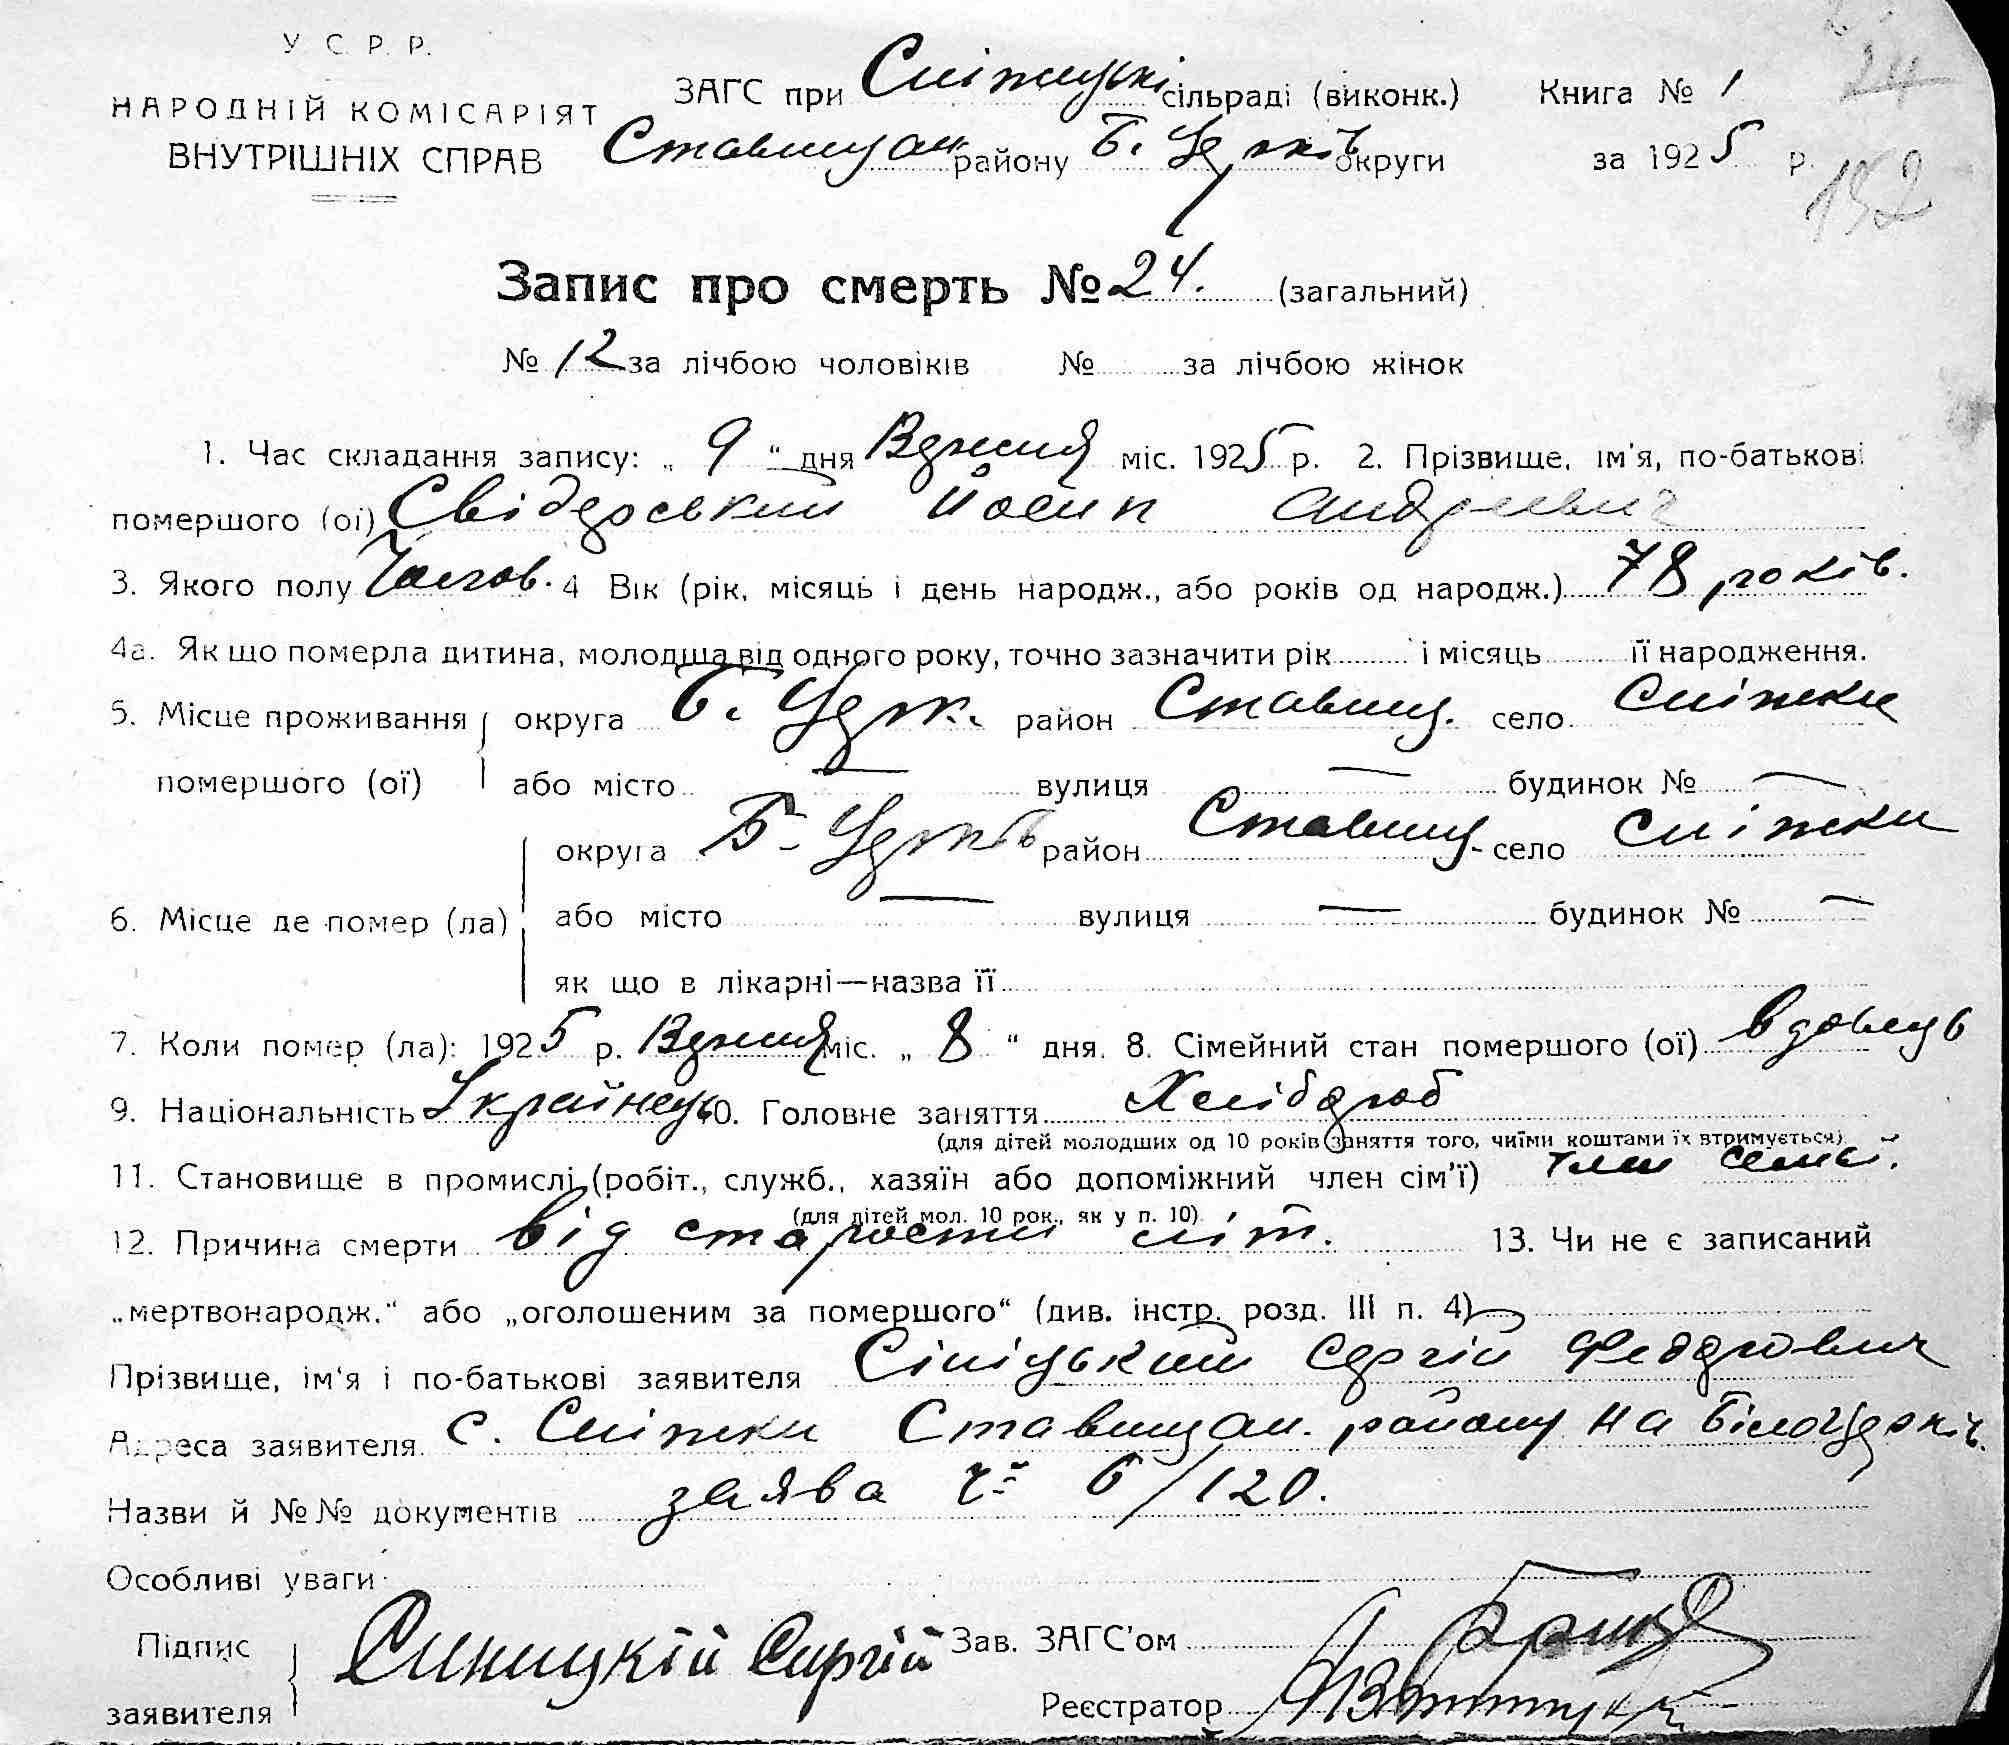 У. С. Р. Р.
НАРОДНІЙ КОМІСАРІЯТ
ВНУТРІШНІХ СПРАВ
ЗАГС при Сніжицькі сільраді (виконк.) Книга № 1
24
Ставищан району Б. Церків округи за 1925 р.
152
Запис про смерть № 24. (загальний)
№ 12 за лічбою чоловіків № за лічбою жінок
1. Час складання запису: „ 9 “ дня Вересня міс. 1925 р. 2. Прізвище, ім'я, по-батькові
помершого (ої) Свідерський Йосип Андреевич
3. Якого полу Чолов. 4 Вік (рік, місяць і день народж., або років од народж.) 78 років.
4а. Як що померла дитина, молодща від одного року, точно зазначити рік і місяць її народження.
5. Місце проживання округа Б. Церк. район Ставищ. село Сніжки
помершого (ої) або місто — вулиця — будинок № —
округа Б- Церків район Ставищ. село Сніжки
6. Місце де помер (ла) або місто — вулиця — будинок № —
як що в лікарні—назва її
7. Коли помер (ла): 1925 р. Вересня міс. „ 8 “ дня. 8. Сімейний стан помершого (ої) вдовець
9. Національність Українець 10. Головне заняття Хлібороб
(для дітей молодших од 10 років заняття того, чиїми коштами їх втримується)
11. Становище в промислі (робіт., служб., хазяїн або допоміжний член сім'ї) член семьї.
(для дітей мол. 10 рок., як у п. 10)
12. Причина смерти від старости літ. 13. Чи не є записаний
„мертвонародж.“ або „оголошеним за помершого“ (див. інстр. розд. III п. 4)
Прізвище, ім'я і по-батькові заявителя Сініцький Сергій Федорович
Адреса заявителя с. Сніжки Ставищан. району на Білоцерків.
Назви й №№ документів заява ч. 6/120.
Особливі уваги
Підпис
заявителя
Синицкій Сиргій Зав. ЗАГС'ом
Реєстратор